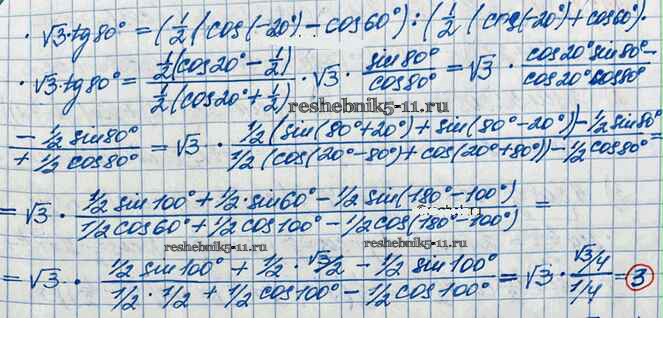 · √3·tg80° = (1/2(cos(-20°) - cos60°) : (1/2 (cos(-20°) + cos60°).
· √3·tg80° = (1/2(cos20° - 1/2))/(1/2(cos20° + 1/2)) · √3 · sin80°/cos80° = √3 · (cos20° sin80° -)/(cos20° cos80°)
reshebnik5-11.ru
(- 1/2 sin80°)/(+ 1/2 cos80°) = √3 · (1/2 (sin(80°+20°) + sin(80°-20°)) - 1/2 sin80°)/(1/2 (cos(20°-80°) + cos(20°+80°)) - 1/2 cos80°) =
= √3 · (1/2 sin100° + 1/2 · sin60° - 1/2 sin(180°-100°))/(1/2 cos60° + 1/2 cos100° - 1/2 cos(180°-100°)) =
reshebnik5-11.ru reshebnik5-11.ru
= √3 · (1/2 sin100° + 1/2 · √3/2 - 1/2 sin100°)/(1/2 · 1/2 + 1/2 cos100° - 1/2 cos100°) = √3 · (√3/4)/(1/4) = 3